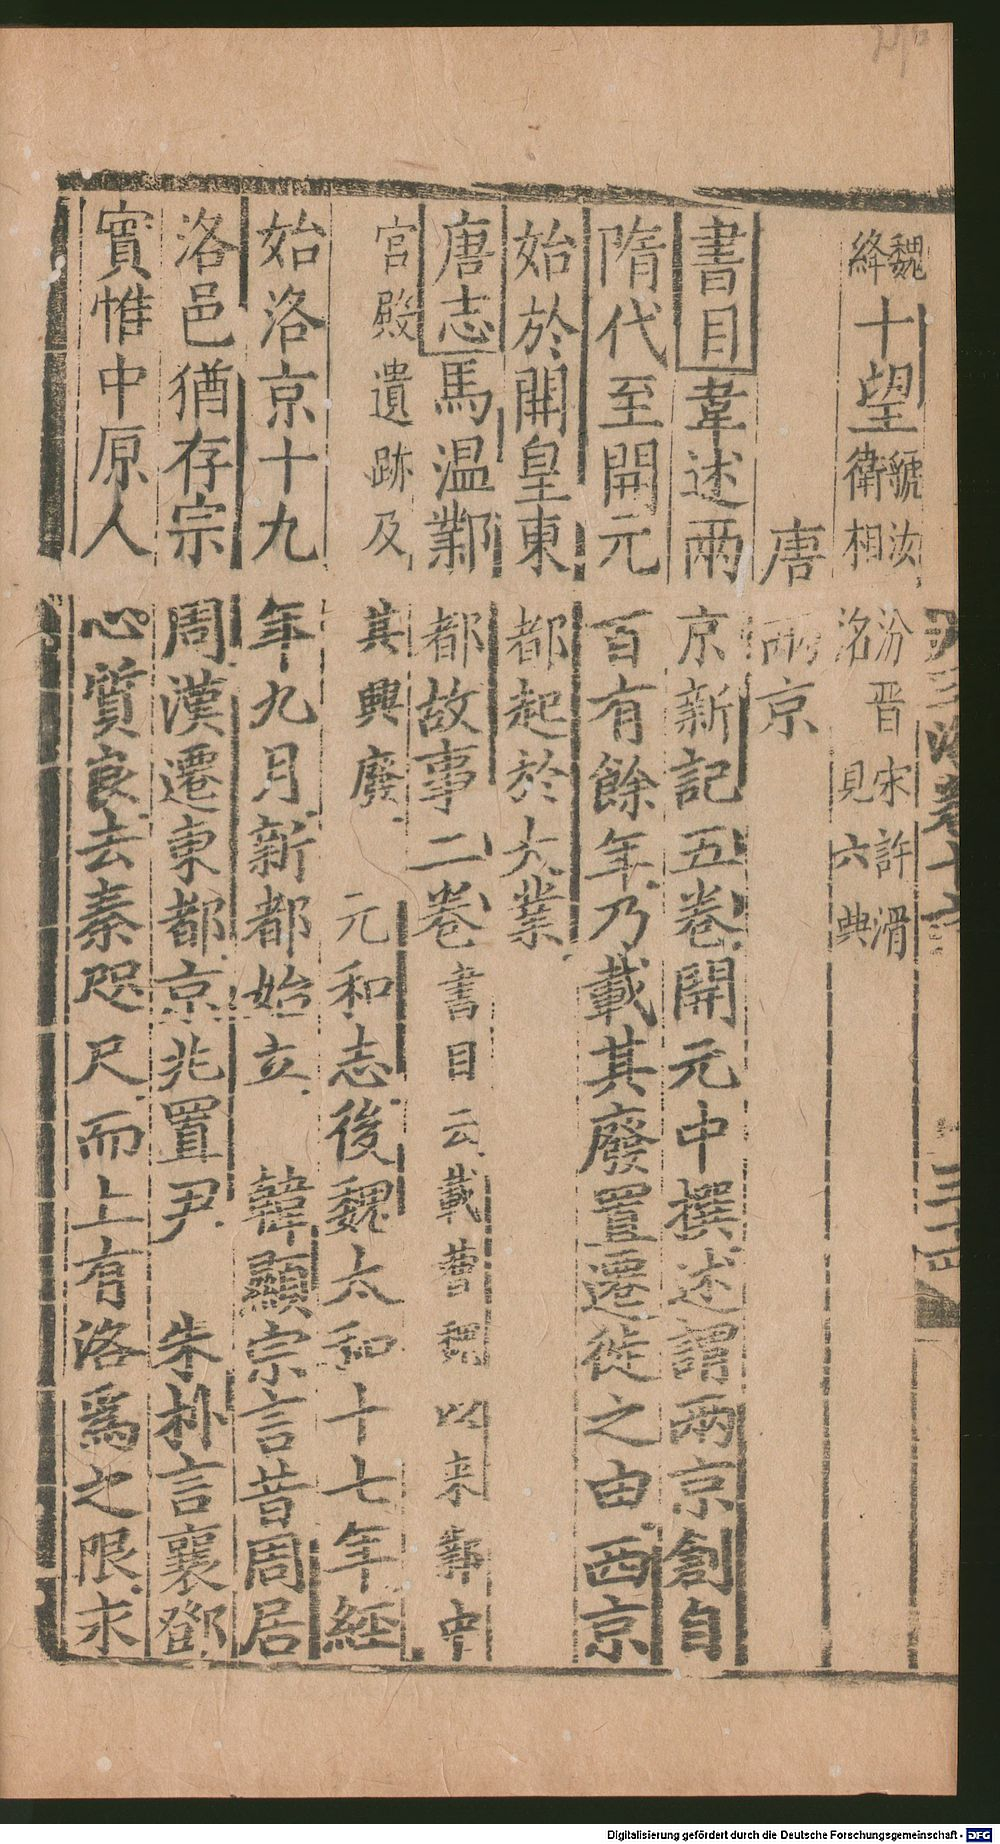 魏
絳
十望
虢汝汾晉宋許滑
衛相洺見六典
唐兩京
書目韋述兩京新記五卷開元中撰述謂兩京創自
隋代至開元百有餘年乃載其廢置遷徙之由西京
始於開皇東都起於大業
唐志馬温鄴都故事二卷書目云載曹魏以来鄴中
宮殿遺跡及其興廢 元和志後魏太和十七年經
始洛京十九年九月新都始立 韓顯宗言昔周居
洛邑猶存宗周漢遷東都京兆置尹 朱朴言襄鄧
實惟中原人心質良去秦咫尺而上有洛爲之限求
Digitalisierung gefördert durch die Deutsche Forschungsgemeinschaft - DFG